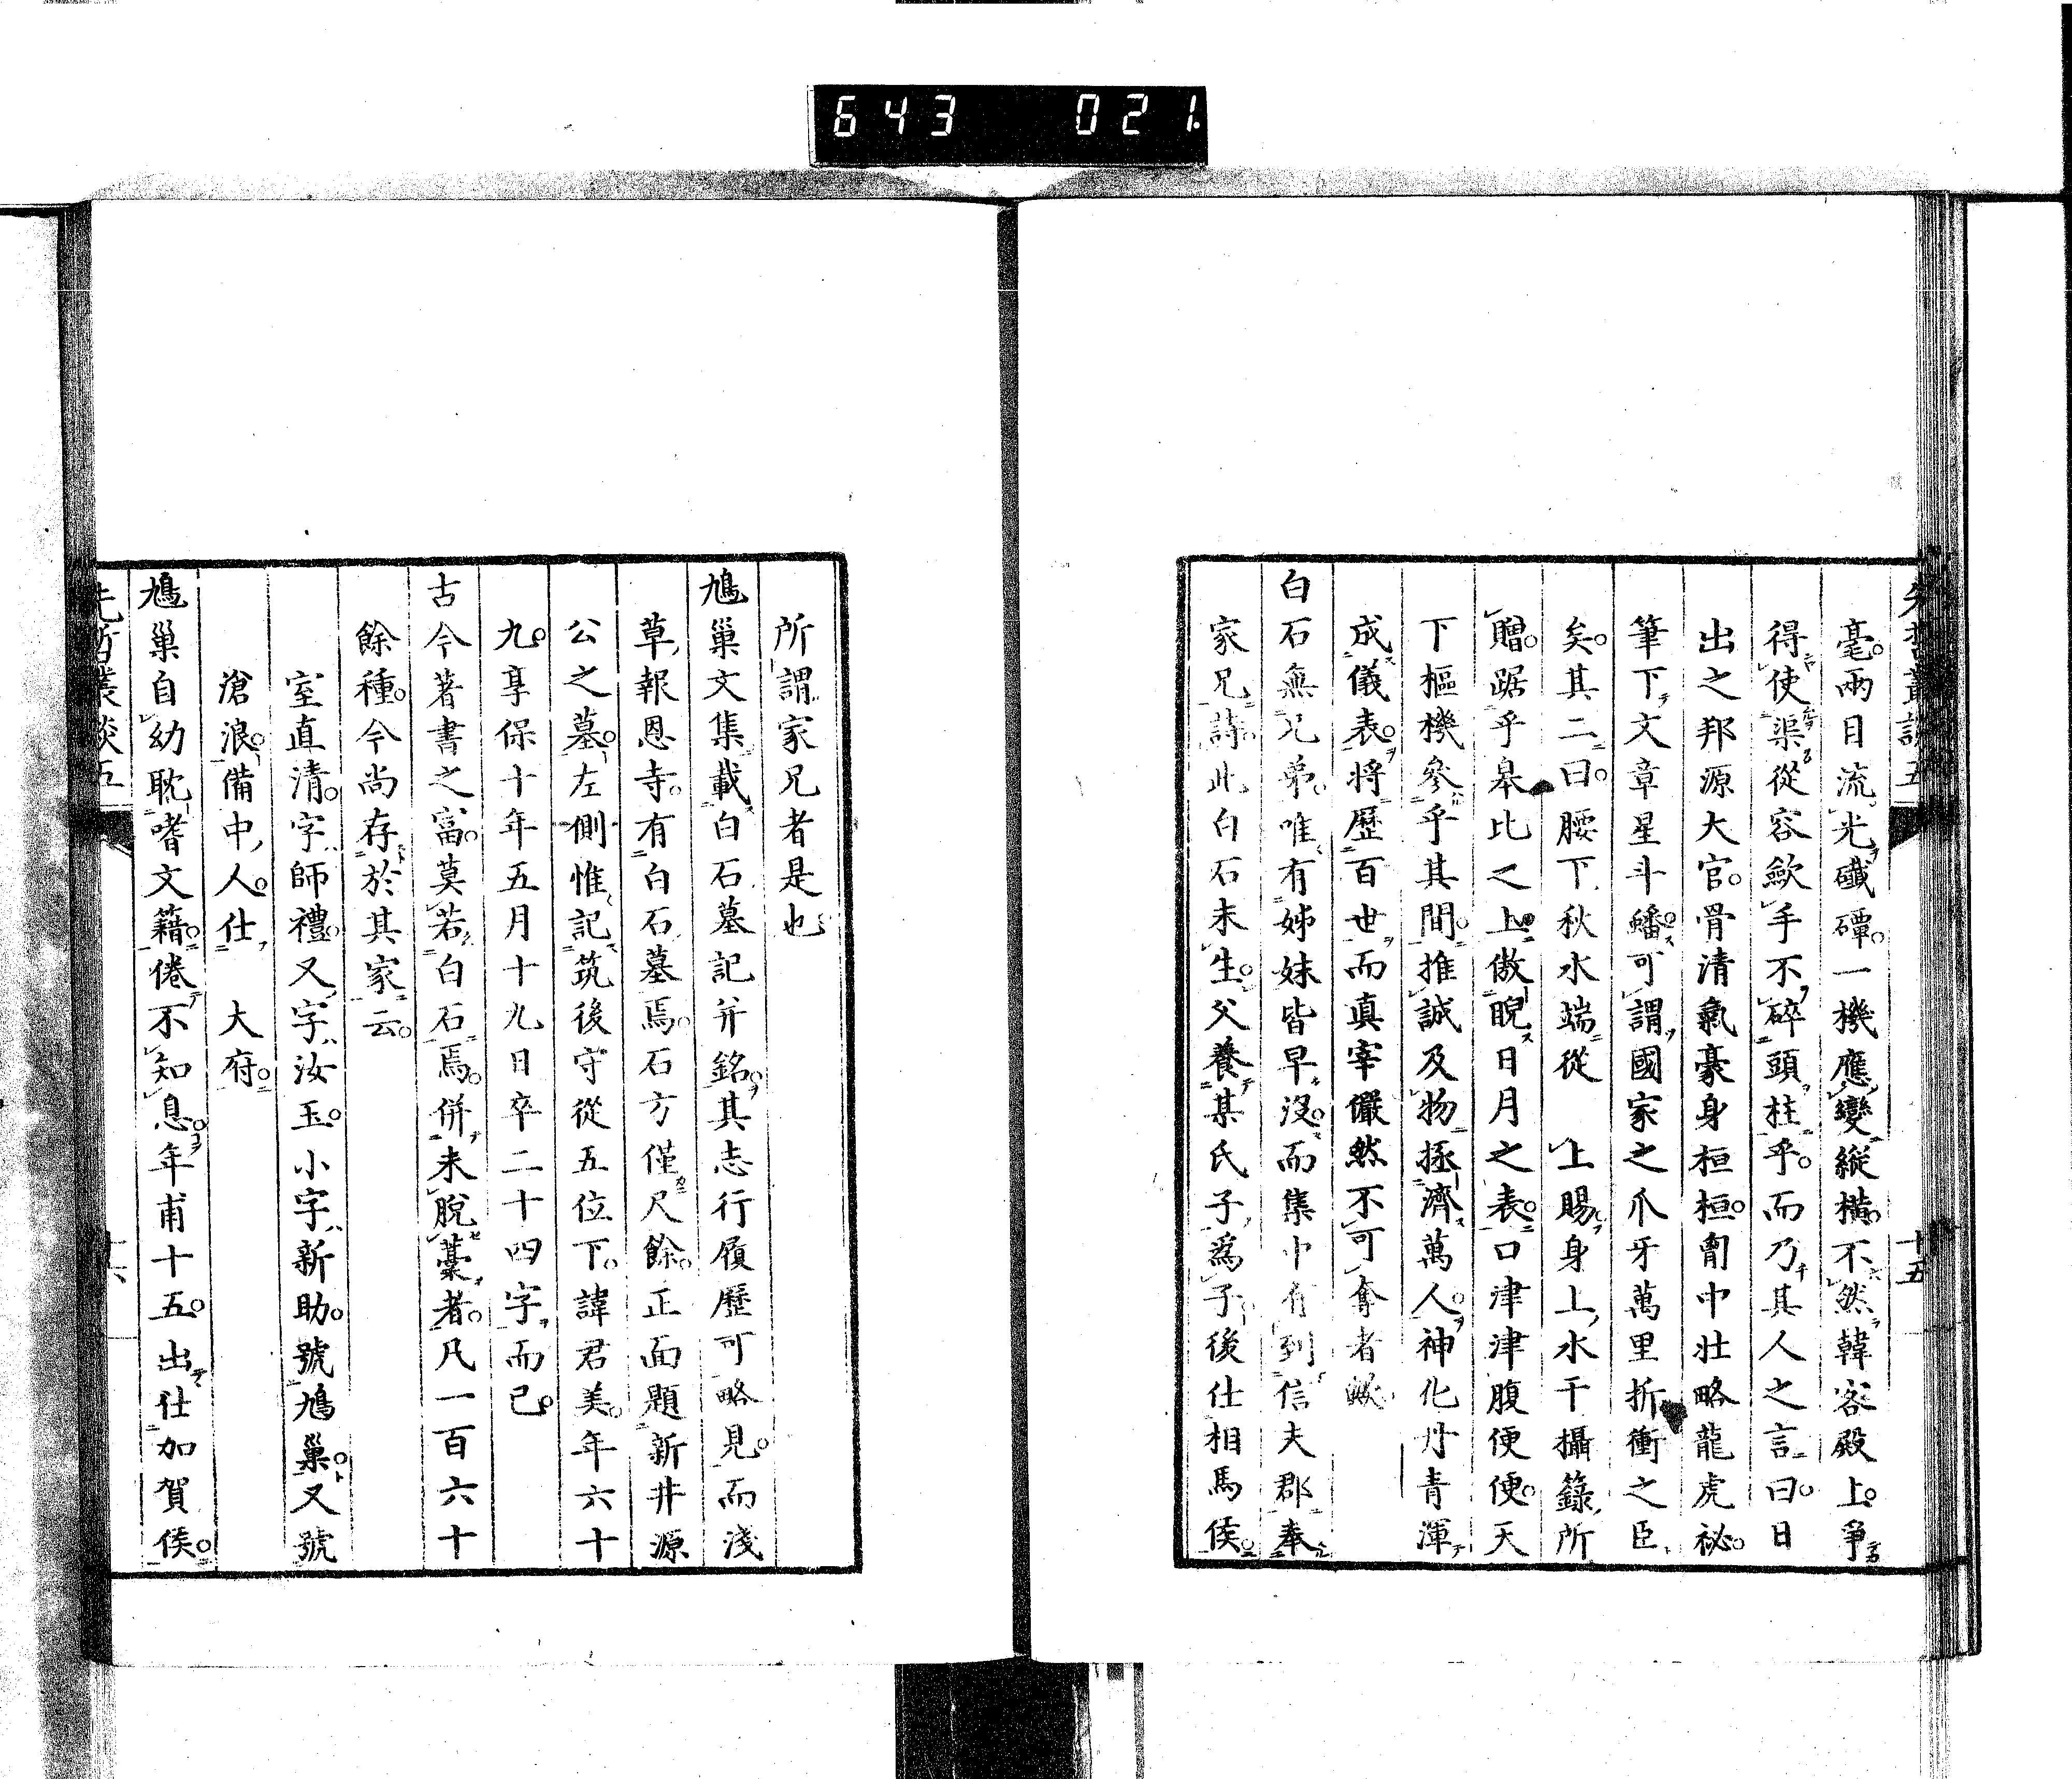 643 021.
先哲叢談五 十五
毫。兩目流光礮磹。一機應變縱橫。不然韓客殿上。爭
得使渠從容歛手不碎頭柱乎。而乃其人之言曰。日
出之邦源大官。骨清氣豪身桓桓。胷中壯略龍虎祕。
筆下文章星斗蟠。可謂國家之爪牙萬里折衝之臣
矣。其二曰。腰下秋水端從 上賜身上水干攝錄所
贈。踞乎皋比之上。傲睨日月之表。口津津腹便便。天
下樞機參乎其間。推誠及物拯濟萬人。神化丹青渾
成儀表。將歷百世而真宰儼然不可奪者歟
白石無兄弟。唯有姊妹皆早沒。而集中有到信夫郡奉
家兄詩。此白石未生。父養某氏子爲子。後仕相馬侯。
所謂家兄者是也
鳩巢文集載白石墓記并銘。其志行履歷可略見。而淺
草報恩寺。有白石墓焉。石方僅尺餘。正面題新井源
公之墓。左側惟記筑後守從五位下。諱君美。年六十
九。享保十年五月十九日卒二十四字而已。
古今著書之富。莫若白石焉。併未脫藁者。凡一百六十
餘種。今尚存於其家云。
室直清。字師禮。又字汝玉。小字新助。號鳩巢。又號
滄浪。備中人。仕 大府。
鳩巢自幼耽嗜文籍。倦不知息。年甫十五。出仕加賀侯。
先哲叢談五 十六